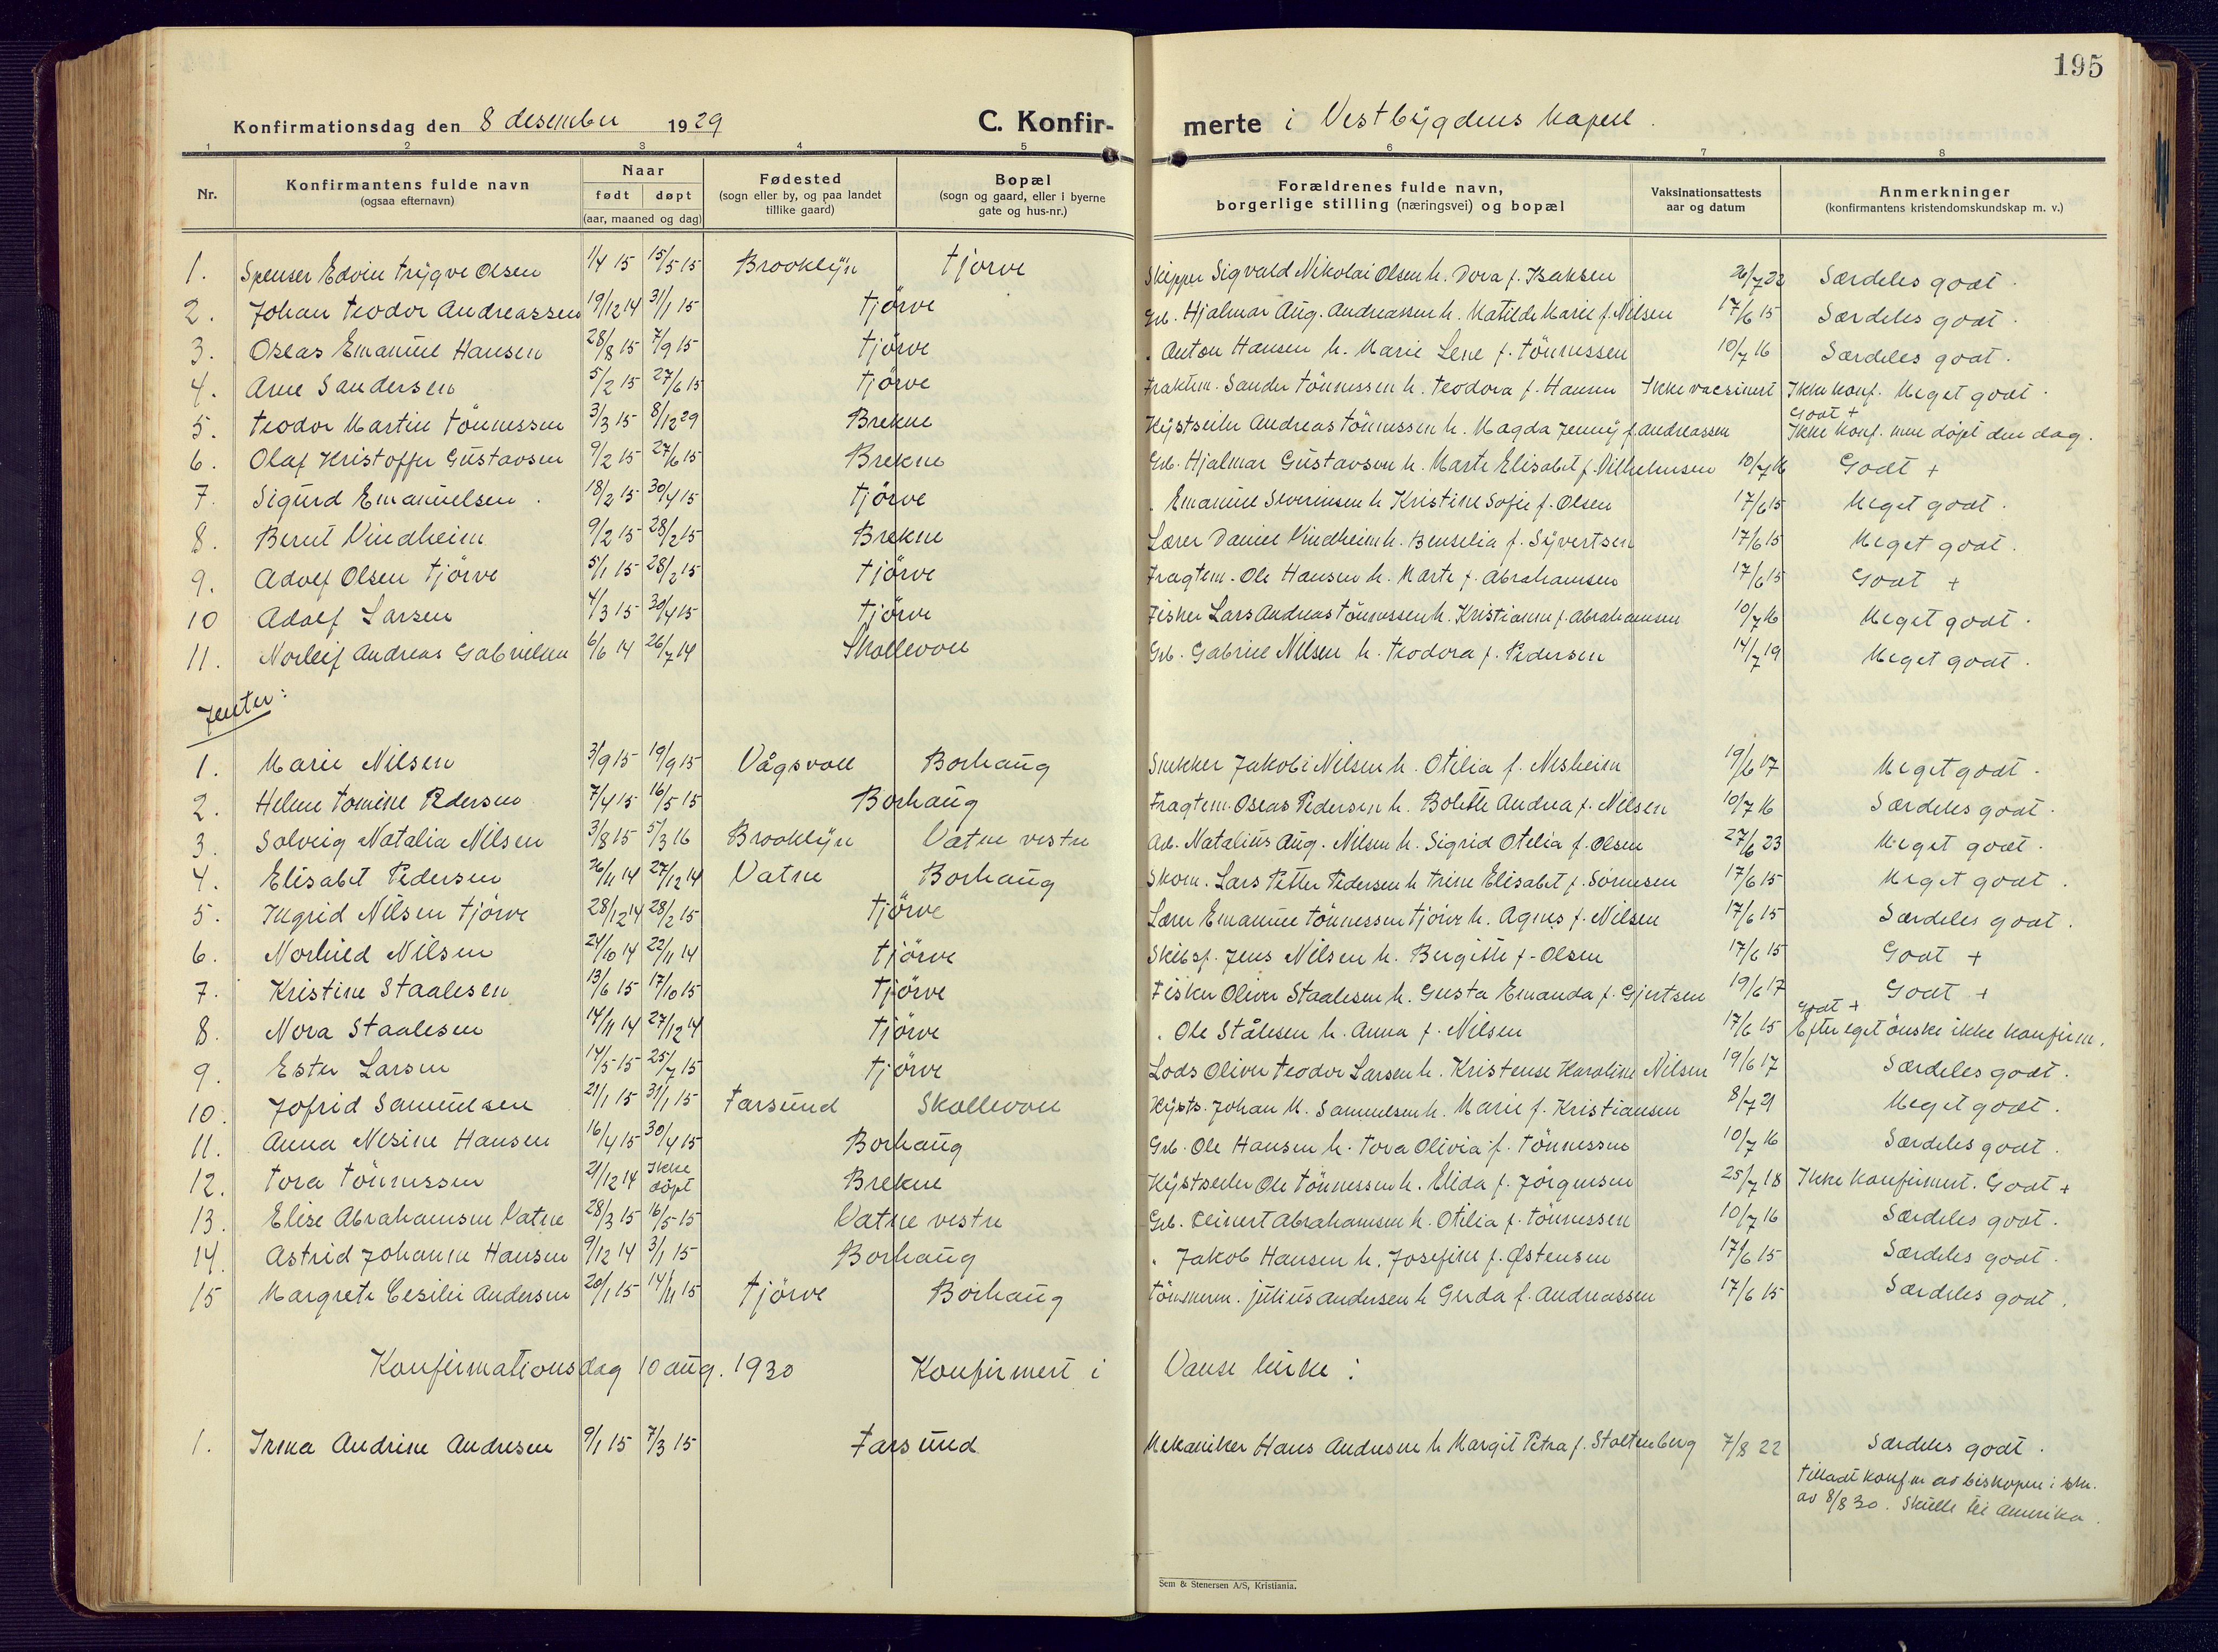 195
Konfirmationsdag den 8 desember 1929 C. Konfir- merte i Vestbygdens kapell.
1 2 3 4 5 6 7 8
Nr. Konfirmantens fulde navn (ogsaa efternavn) Naar født døpt (aar, maaned og dag) Fødested (sogn eller by, og paa landet tillike gaard) Bopæl (sogn og gaard, eller i byerne gate og hus-nr.) Forældrenes fulde navn, borgerlige stilling (næringsvei) og bopæl Vaksinationsattests aar og datum Anmerkninger (konfirmantens kristendomskundskap m. v.)
1. Spenser Edvin Trygve Olsen 1/4 15 15/5 15 Brooklyn Tjørve Skipper Sigvald Nikolai Olsen h. Dora f. Isaksen 26/7 22 Særdeles godt.
2. Johan Teodor Andreassen 19/12 14 31/1 15 Tjörve Grb. Hjalmar Aug. Andreassen h. Matilde Marie f. Nilsen 17/6 15 Særdeles godt.
3. Oseas Emanuel Hansen 28/8 15 7/9 15 Tjörve " Anton Hansen h. Marie Lene f. Tönnessen 10/7 16 Særdeles godt.
4. Arne Sandersen 5/2 15 27/6 15 Tjörve Fraktem. Sander Tönnessen h. Teodora f. Hansen Ikke vacsinert Ikke konf. Meget godt.
5. Teodor Martin Tönnessen 3/3 15 8/12 29 Brekne Kystseiler Andreas Tönnessen h. Magda Jenny f. Andreassen Godt + Ikke konf. men döpt den dag.
6. Olaf Kristoffer Gustavsen 9/2 15 27/6 15 Brekne Grb. Hjalmar Gustavson h. Marte Elisabet f. Vilhelmsen 10/7 16 Godt +
7. Sigurd Emanuelsen. 18/2 15 30/4 15 Tjörve " Emanuel Severinsen h Kristine Sofie f. Olsen 17/6 15 Meget godt.
8. Bernt Vindheim 9/2 15 28/2 15 Brekne Lærer Daniel Vindheim h. Benselia f. Syvertsen 17/6 15 Meget godt.
9. Adolf Olsen Tjörve 5/1 15 28/2 15 Tjörve Fragtem. Ole Hansen h. Marte f. Abrahamsen 17/6 15 Godt +
10 Adolf Larsen 4/3 15 30/4 15 Tjörve Fisker Lars Andreas Tönnessen h. Kristianne f. Abrahamsen 10/7 16 Meget godt.
11. Norleif Andreas Gabrielsen 6/6 14 26/7 14 Skollevoll Grb. Gabriel Nilsen h. Teodora f. Pedersen 14/7 19 Meget godt.
Jenter:
1. Marie Nilsen 3/9 15 19/9 15 Vågsvoll Borhaug Snekker Jakob Nilsen h. Otelia f. Nesheim 19/6 17 Meget godt.
2. Helene Tomine Pedersen 7/4 15 16/5 15 Borhaug Fragtem. Oseas Pedersen h. Bolette Andrea f. Nilsen 10/7 16 Særdeles godt.
3. Solveig Natalia Nilsen 3/8 15 5/3 16 Brooklyn Vatne vestre Arb. Natalius Aug. Nilsen h. Sigrid Otelia f. Olsen 27/6 23 Meget godt.
4. Elisabet Pedersen 26/11 14 27/12 14 Vatne Borhaug Skom. Lars Petter Pedersen h Trine Elisabet f. Sörensen 17/6 15 Meget godt.
5. Ingrid Nilsen Tjörve 28/12 14 28/2 15 Tjörve Lærer Emanuel Tönnessen Tjörve h. Agnes f. Nilsen 17/6 15 Særdeles godt.
6. Norhild Nilsen 24/10 14 22/11 14 Tjörve Skibsf. Jens Nilsen h. Bergitte f. Olsen 17/6 15 Godt +
7. Kristine Staalesen 13/6 15 17/10 15 Tjörve Fisker Oliver Staalesen h. Gusta Emanda f. Gjertsen 19/6 17 Godt +
8. Nora Staalesen 14/11 14 27/12 14 Tjörve " Ole Stålesen h. Anna f. Nilsen 17/6 15 Godt + Efter eget önske ikke konfirm.
9. Ester Larsen 14/5 15 25/7 15 Tjörve Lods Oliver Teodor Larsen h. Kristense Karoline Nilsen 19/6 17 Særdeles godt.
10. Jofrid Samuelsen 21/1 15 31/1 15 Farsund Skollevoll Kysts. Johan M. Samuelsen h. Marie f. Kristiansen 8/7 21 Meget godt.
11. Anna Nesine Hansen 16/4 15 30/4 15 Borhaug Grb. Ole Hansen h. Tora Olivia f. Tönnessen 10/7 16 Særdeles godt.
12. Tora Tönnessen 21/12 14 Ikke döpt Brekne Kystseiler Ole Tönnessen h. Elida f. Jörgensen 25/7 18 Ikke konfirmert. Godt +
13. Elise Abrahamsen Vatne 28/3 15 16/5 15 Vatne vestre Grb. Reinert Abrahamsen h. Otelia f. Tönnessen 10/7 16 Særdeles godt.
14. Astrid Johanne Hansen 9/12 14 3/1 15 Borhaug " Jakob Hansen h. Josefine f. Østensen 17/6 15 Særdeles godt.
15 Margrete Cesilie Andersen 20/1 15 14/11 15 Tjörve Borhaug Tömmerm. Julius Andersen h Gerda f. Andreassen 17/6 15 Særdeles godt.
Konfirmationsdag 10 aug. 1930 Konfirmert i Vanse kirke:
1. Irma Andrine Andresen 9/1 15 7/3 15 Farsund Mekaniker Hans Andresen h Margit Petra f. Stoltenberg 7/8 22 Særdeles godt.
Tilladt konf. av biskopen i
av 8/8 30. Skulle til Amerika.
Sem & Stenersen A/S, Kristiania.